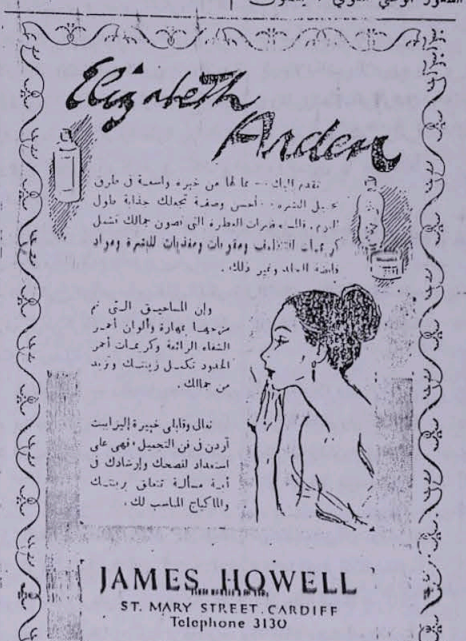 Elizabeth
Arden
تقدم اليك بما لها من خبرة واسعة في طرق
تجميل البشرة أحسن وصفة تجعلك جذابة طول
اليوم. المستحضرات العطرة التي تصون جمالك تشمل
كريمات التنظيف ومقويات ومغذيات للبشرة ومواد
قابضة للجلد وغير ذلك.
وإن المساحيق التي تم
مزجها بمهارة وألوان أحمر
الشفاه الرائعة وكريمات أحمر
الخدود تكمل زينتك وتزيد
من جمالك.
تعالي وقابلي خبيرة إليزابيث
أردن في فن التجميل، فهي على
استعداد لنصحك وإرشادك في
أية مسألة تتعلق بزينتك
والماكياج المناسب لك.
JAMES HOWELL
ST. MARY STREET. CARDIFF
Telephone 3130